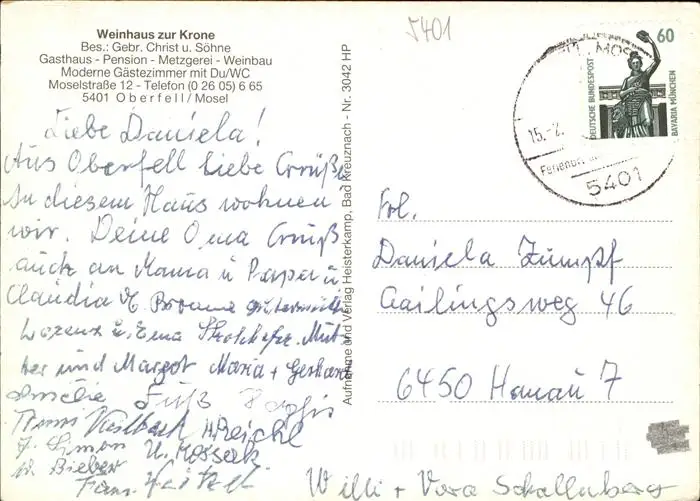 Weinhaus zur Krone
Bes.: Gebr. Christ u. Söhne
Gasthaus - Pension - Metzgerei - Weinbau
Moderne Gästezimmer mit Du/WC
Moselstraße 12 - Telefon (0 26 05) 6 65
5401 Oberfell/Mosel
Liebe Daniela!
Aus Oberfell Liebe Grüße
In diesem Haus wohnen
wir. Deine Oma Gruß
auch an Mama u Papa u
Claudia
Lorenz u. Erna Mut-
ter und Margot Maria + Gerhard
Amelie Fuß
Anni H. Reichl
J. Simon U. Mossak
W. Bieber
Franz
Willi + Vera Schallenberg
Aufnahme und Verlag Heisterkamp, Bad Kreuznach - Nr. 3042 HP
5401
60
DEUTSCHE BUNDESPOST
BAVARIA MÜNCHEN
15.-2.
5401
Frl.
Daniela Zumpf
Gailingsweg 46
6450 Hanau 7